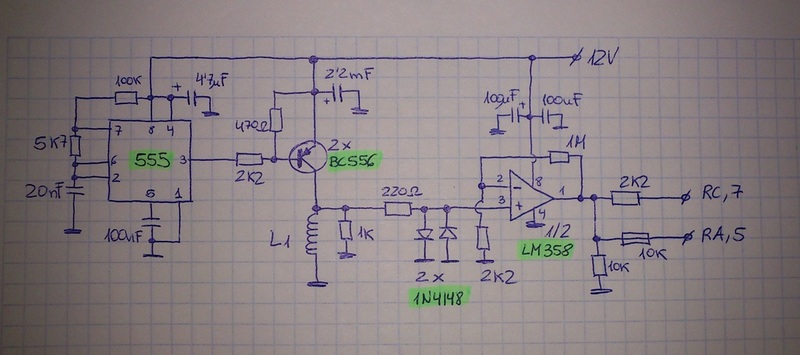 12V
100K
+ 4'7µF
+ 2'2mF
100µF +
100nF
5K7
7
8
4
470Ω
2x
1M
555
6
3
BC556
2
2K2
20nF
5
1
220Ω
2
-
8
1
2K2
RC,7
3
+
4
100nF
L1
1K
1/2
RA,5
LM358
10K
10K
2x
2K2
1N4148